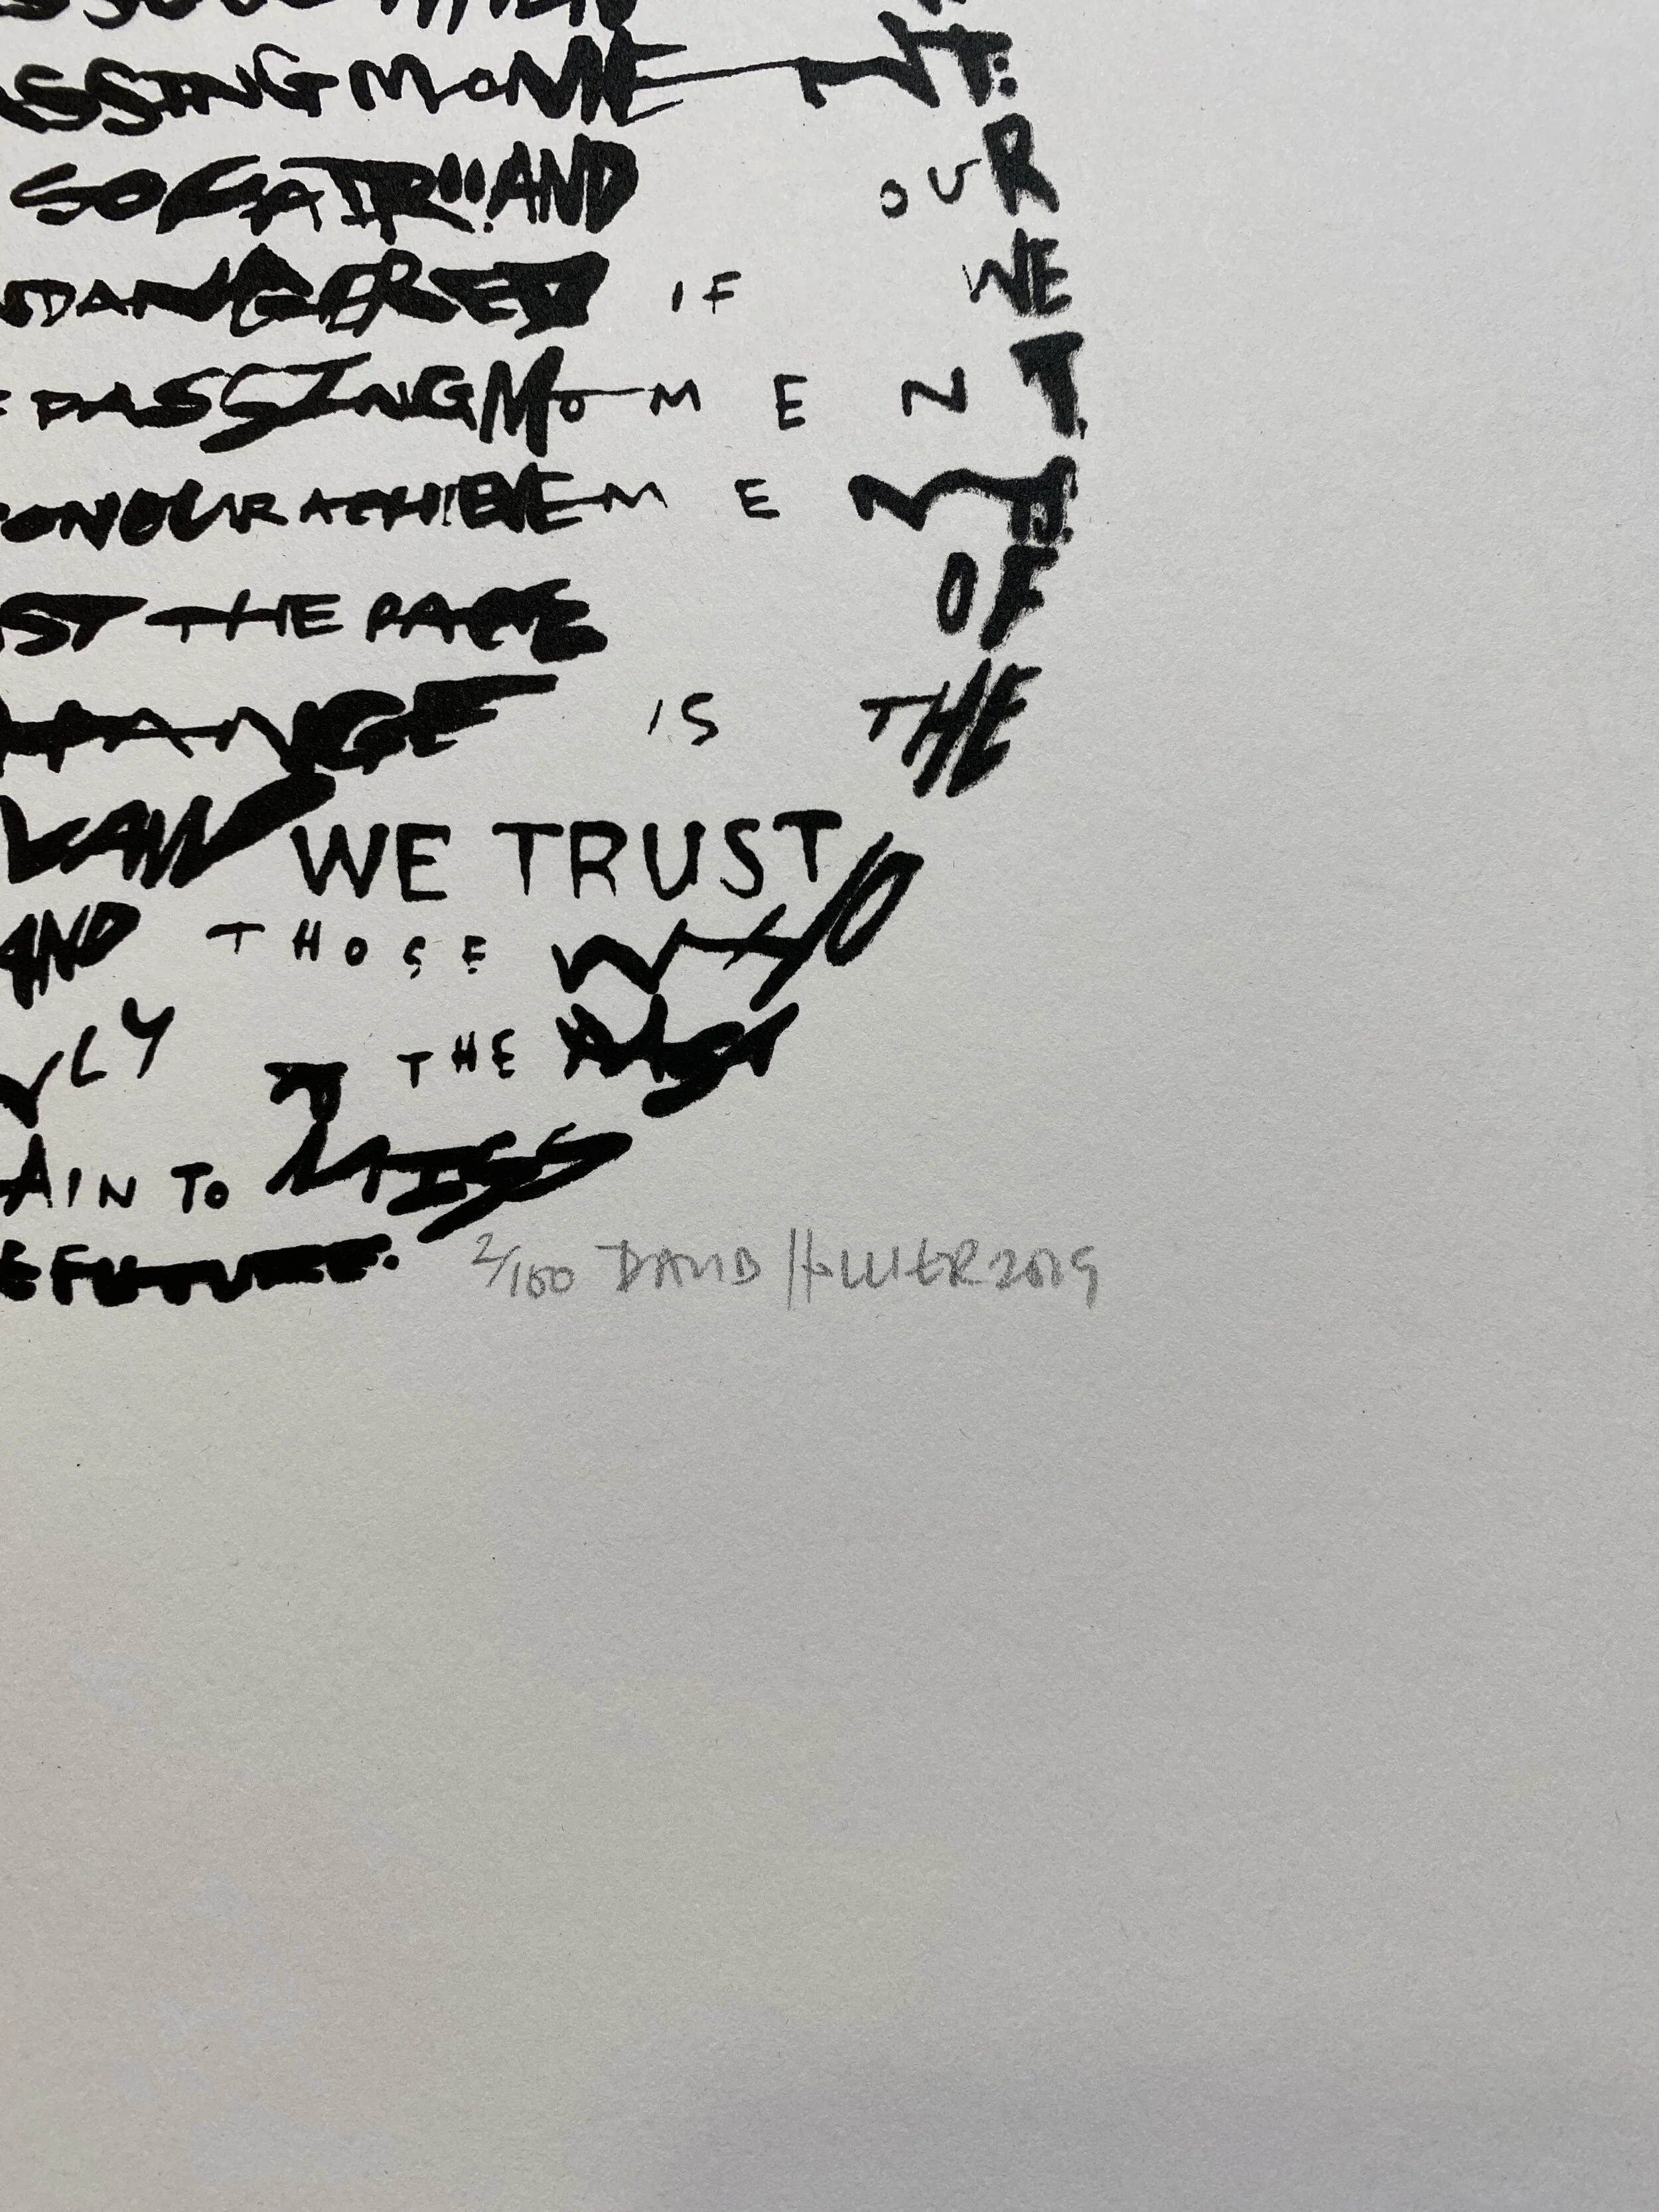 SSING MOMENT:
SO FAIR!! AND OUR
NDANGERED IF WE
PASSING MOMENT.
ON OUR ACHIEVEMENTS.
ST THE PACE OF
HANGE IS THE
LAW WE TRUST
AND THOSE WHO
LY TO THE PAST
AIN TO MISS
E FUTURE.
2/100 DAVID HOLLIER 2019